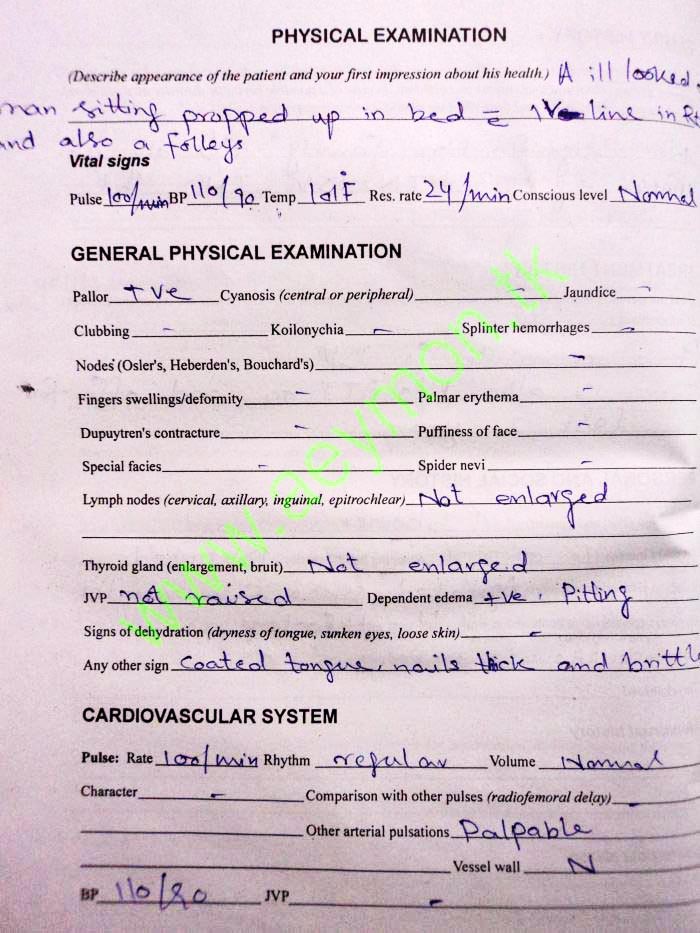 PHYSICAL EXAMINATION
(Describe appearance of the patient and your first impression about his health.) A ill looked
man sitting propped up in bed c̄ IV line in Rt
and also a folleys
Vital signs
Pulse 100/min BP 110/90 Temp 101°F Res. rate 24/min Conscious level Normal
GENERAL PHYSICAL EXAMINATION
Pallor +ve Cyanosis (central or peripheral) Jaundice -
Clubbing - Koilonychia - Splinter hemorrhages -
Nodes (Osler's, Heberden's, Bouchard's) -
Fingers swellings/deformity - Palmar erythema -
Dupuytren's contracture - Puffiness of face -
Special facies - Spider nevi -
Lymph nodes (cervical, axillary, inguinal, epitrochlear) Not enlarged
Thyroid gland (enlargement, bruit) Not enlarged
JVP not raised Dependent edema +ve, Pitting
Signs of dehydration (dryness of tongue, sunken eyes, loose skin) -
Any other sign coated tongue, nails thick and brittl
www.aeymon.tk
CARDIOVASCULAR SYSTEM
Pulse: Rate 100/min Rhythm regular Volume Normal
Character - Comparison with other pulses (radiofemoral delay) -
Other arterial pulsations Palpable
Vessel wall N
BP 110/90 JVP -